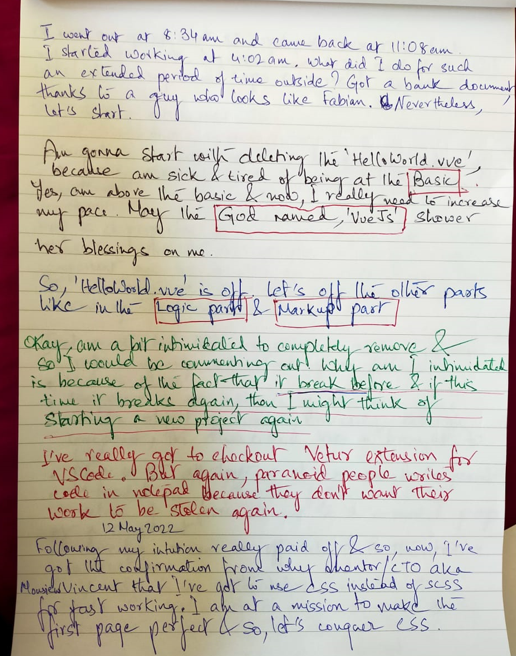 I went out at 8:34 am and came back at 11:08 am.
I started working at 4:02 am. What did I do for such
an extended period of time outside? Got a bank document,
thanks to a guy who looks like Fabian. Nevertheless,
let's start.
Am gonna start with deleting the 'HelloWorld.vue',
because am sick & tired of being at the Basic.
Yes, am above the basic & now, I really need to increase
my pace. May the God named, 'VueJs' shower
her blessings on me.
So, 'HelloWorld.vue' is off. Let's off the other parts
like in the Logic part & Markup part
Okay, am a bit intimidated to completely remove &
so I would be commenting out. Why am I intimidated
is because of the fact that it break before & if this
time it breaks again, then I might think of
starting a new project again
I've really got to checkout Vetur extension for
VSCode. But again, paranoid people writes
code in notepad because they don't want their
work to be stolen again.
12 May 2022
Following my intution really paid off & so, now, I've
got the confirmation from why mentor/CTO aka
Monsieur Vincent that I've got to use css instead of scss
for fast working. I am at a mission to make the
first page perfect & so, let's conquer CSS.